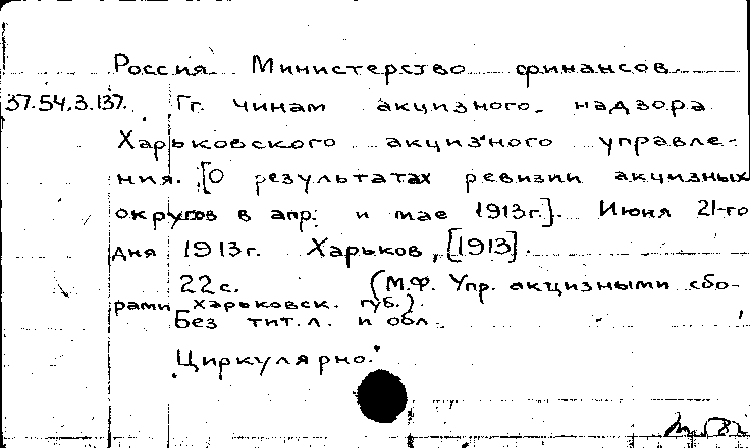 Россия. Министерство финансов.
37.54.3.137. Гг. чинам акцизного надзора
Харьковского акцизного управле-
ния. [О результатах ревизии акцизных
округов в апр. и мае 1913г.]. Июня 21-го
дня 1913г. Харьков, [1913].
22с. (М.Ф. Упр. акцизными сбо-
рами Харьковск. губ.).
Без тит.л. и обл.
Циркулярно.